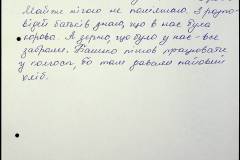 Майже нічого не пам'ятаю. З розпо-
відей батьків знаю, що в нас була
корова. А зерно, що було у нас - все
забрали. Батько пішов працювати
у колгосп, бо там давали пайовий
хліб.